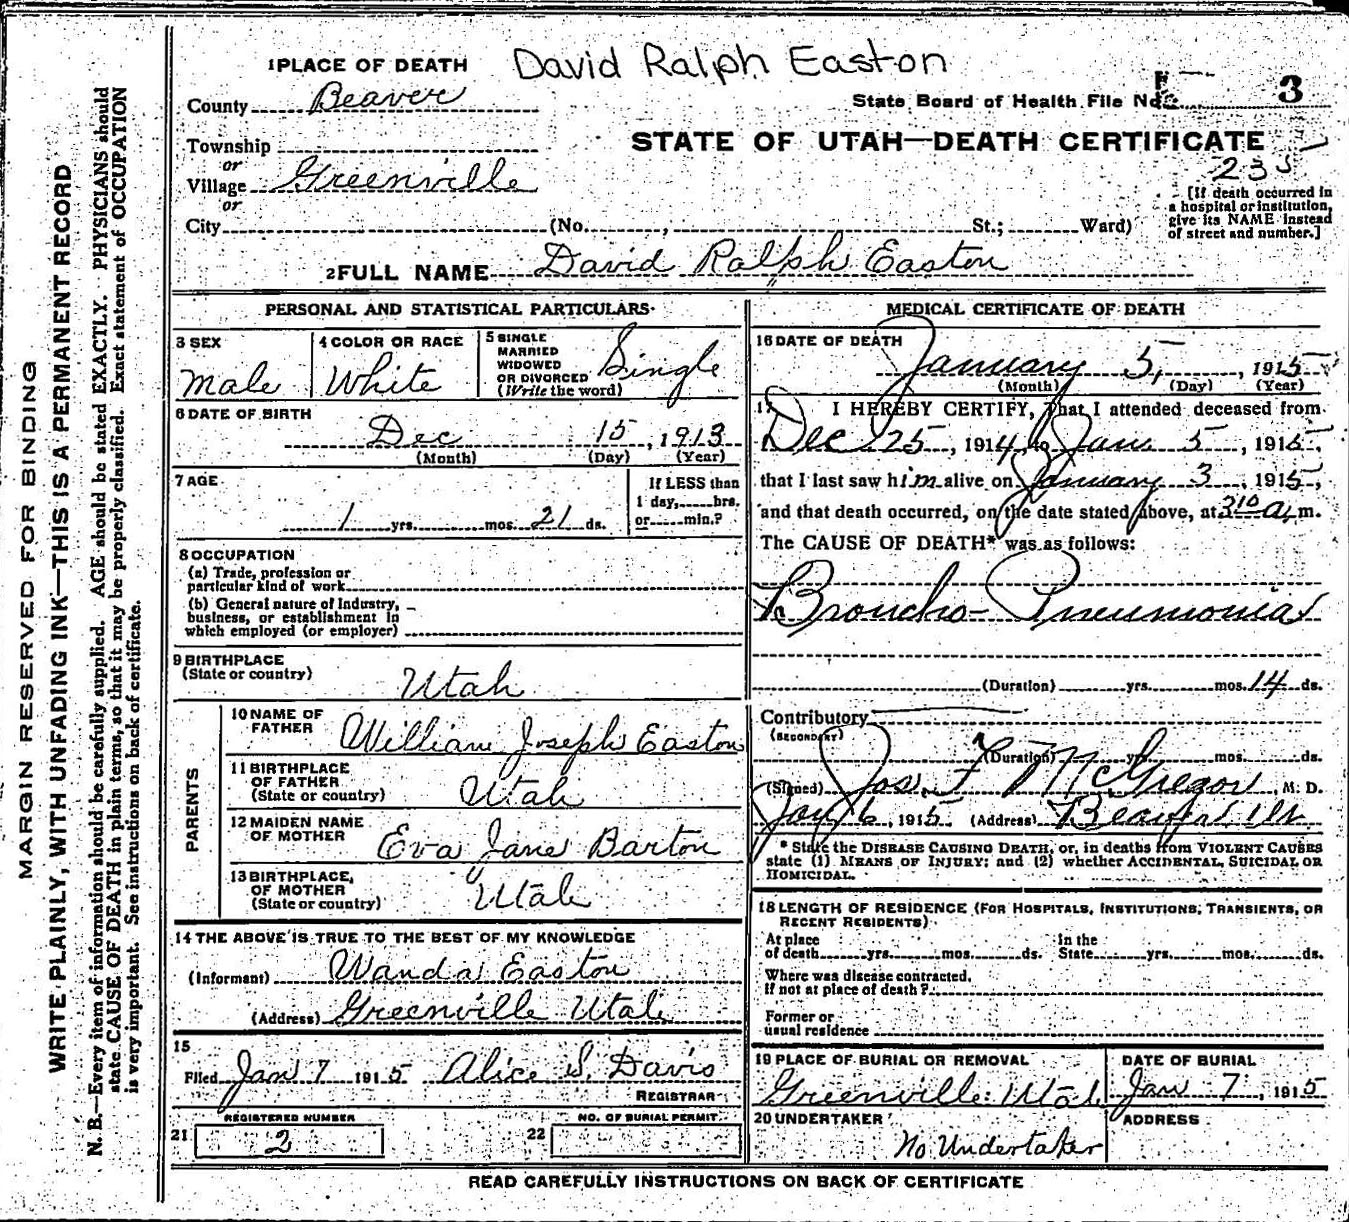 David Ralph Easton
1 PLACE OF DEATH
County Beaver
State Board of Health File No. 3
STATE OF UTAH—DEATH CERTIFICATE
235
Township
or
Village Greenville
or
City (No. , St.; Ward)
[If death occurred in
a hospital or institution,
give its NAME instead
of street and number.]
2 FULL NAME David Ralph Easton
PERSONAL AND STATISTICAL PARTICULARS
3 SEX
Male
4 COLOR OR RACE
White
5 SINGLE
MARRIED
WIDOWED
OR DIVORCED
(Write the word)
Single
6 DATE OF BIRTH
Dec 15, 1913
(Month) (Day) (Year)
7 AGE
1 yrs. mos. 21 ds.
If LESS than
1 day, hrs.
or min.?
8 OCCUPATION
(a) Trade, profession or
particular kind of work
(b) General nature of Industry,
business, or establishment in
which employed (or employer)
9 BIRTHPLACE
(State or country)
Utah
PARENTS
10 NAME OF
FATHER
William Joseph Easton
11 BIRTHPLACE
OF FATHER
(State or country)
Utah
12 MAIDEN NAME
OF MOTHER
Eva Jane Barton
13 BIRTHPLACE
OF MOTHER
(State or country)
Utah
14 THE ABOVE IS TRUE TO THE BEST OF MY KNOWLEDGE
(Informant) Wanda Easton
(Address) Greenville Utah
15
Filed Jan 7 1915 Alice S. Davis
REGISTRAR
REGISTERED NUMBER
21 2
NO. OF BURIAL PERMIT
22
MEDICAL CERTIFICATE OF DEATH
16 DATE OF DEATH
January 5, 1915
(Month) (Day) (Year)
17 I HEREBY CERTIFY, That I attended deceased from
Dec 25, 1914, to Jan 5, 1915,
that I last saw him alive on January 3, 1915,
and that death occurred, on the date stated above, at 3 10 a, m.
The CAUSE OF DEATH* was as follows:
Broncho-Pneumonia
(Duration) yrs. mos. 14 ds.
Contributory
(SECONDARY)
(Duration) yrs. mos. ds.
(Signed) Jos. F. McGregor, M. D.
Jan 6, 1915 (Address)
* State the DISEASE CAUSING DEATH, or, in deaths from VIOLENT CAUSES
state (1) MEANS OF INJURY; and (2) whether ACCIDENTAL, SUICIDAL OR
HOMICIDAL.
18 LENGTH OF RESIDENCE (FOR HOSPITALS, INSTITUTIONS, TRANSIENTS, OR
RECENT RESIDENTS)
At place
of death yrs. mos. ds.
In the
State yrs. mos. ds.
Where was disease contracted,
If not at place of death?
Former or
usual residence
19 PLACE OF BURIAL OR REMOVAL
Greenville Utah
DATE OF BURIAL
Jan 7, 1915
20 UNDERTAKER
No Undertaker
ADDRESS
READ CAREFULLY INSTRUCTIONS ON BACK OF CERTIFICATE
MARGIN RESERVED FOR BINDING
WRITE PLAINLY, WITH UNFADING INK—THIS IS A PERMANENT RECORD
N. B.—Every item of information should be carefully supplied. AGE should be stated EXACTLY. PHYSICIANS should
state CAUSE OF DEATH in plain terms, so that it may be properly classified. Exact statement of OCCUPATION
is very important. See instructions on back of certificate.